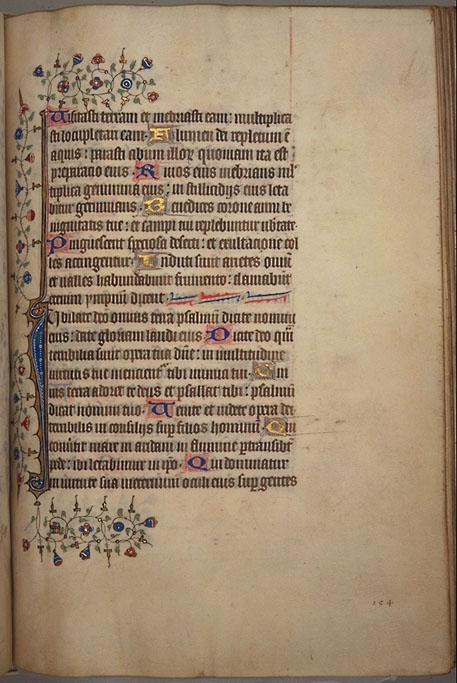 Uisitasti terram et inebriasti eam: multiplica
sti locupletare eam. Flumen dei repletum ē
aquis: parasti cibum illoꝝ quoniam ita est
preparacio eius. Riuos eius inebrians mul
tiplica genimina eius: in stillicidijs eius leta
bitur germinans. Benedices corone anni be
nignitatis tue: et campi tui replebuntur ubertate.
Pinguescent speciosa deserti: et exultacione col
les accingentur. Induti sunt arietes ouiū
et ualles habundabunt frumento: clamabūt
etenim ympnū dicent.
Iubilate deo omnis terra psalmū dicite nomini
eius: date gloriam laudi eius. Dicite deo quā
terribilia sunt opera tua dn̄e: in multitudine
uirtutis tue mencientᷣ tibi inimici tui. Om
nis terra adoret te deus et psallat tibi: psalmū
dicat nomini tuo. Uenite et uidete opera dei
terribilis in consilijs suꝑ filios hominū. Qui
conuertit mare in aridam in flumine ꝑtransibūt
pede: ibi letabimur in ip̄o. Qui dominatur
in uirtute sua in eternum oculi eius suꝑ gentes
154